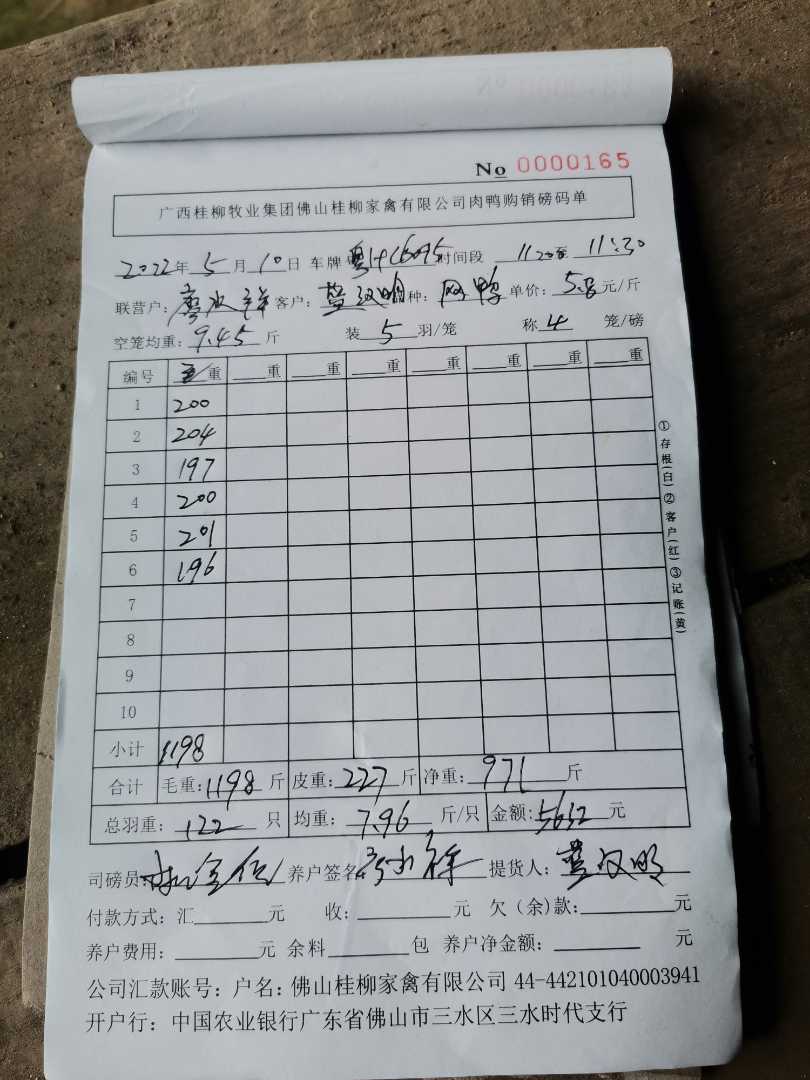 No 0000165
广西桂柳牧业集团佛山桂柳家禽有限公司肉鸭购销磅码单
2022年5月10日 车牌 粤H 时间段 1120至11:30
联营户: 廖 祥 客户: 蓝汉明 种: 网鸭 单价: 5.8元/斤
空笼均重: 9.45斤 装5羽/笼 称4笼/磅
编号 重 重 重 重 重 重 重 重
1 200
2 204
3 197
4 200
5 201
6 196
7
8
9
10
小计 1198
合计 毛重: 1198斤 皮重: 227斤 净重: 971斤
总羽重: 122只 均重: 7.96斤/只 金额: 5632元
司磅员: 养户签名: 提货人: 蓝汉明
付款方式: 汇 元 收: 元 欠(余)款: 元
养户费用: 元 余料 包 养户净金额: 元
公司汇款账号: 户名: 佛山桂柳家禽有限公司 44-442101040003941
开户行: 中国农业银行广东省佛山市三水区三水时代支行
①存根(白)②客户(红)③记账(黄)